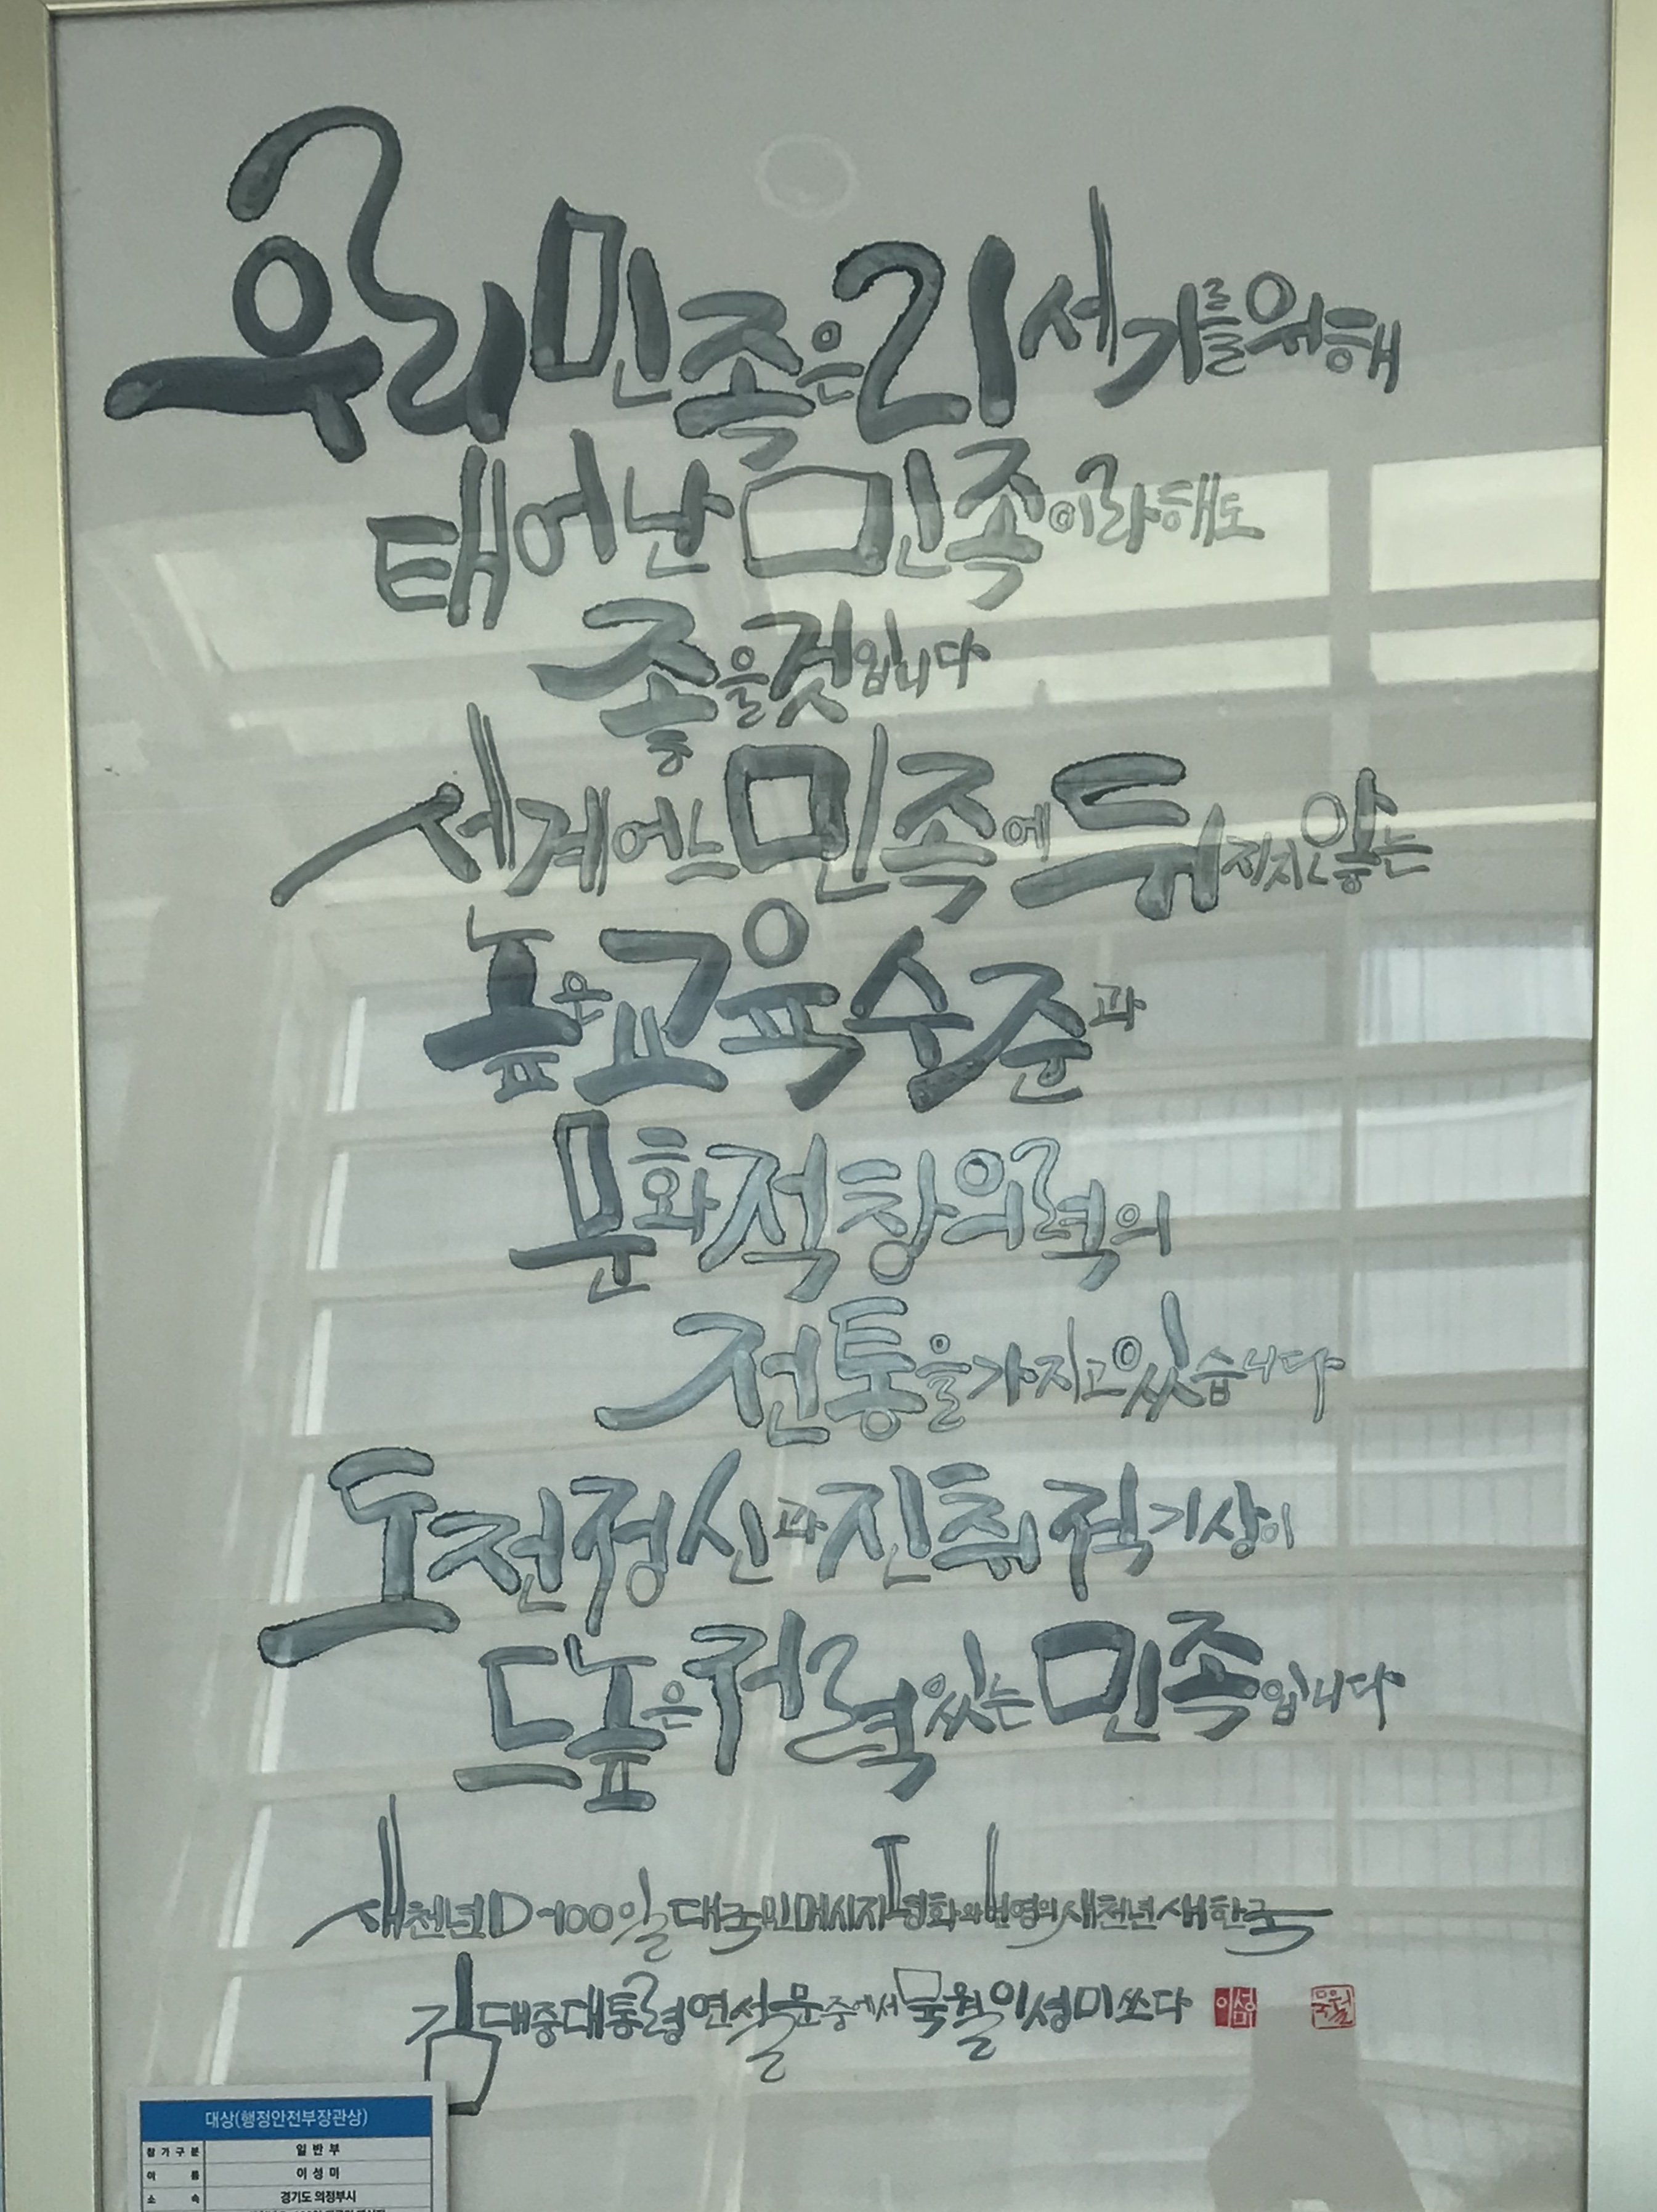 우리민족은 21세기를 위해
태어난 민족이라 해도
좋을 것입니다
세계 어느 민족에 뒤지지 않는
높은 교육수준과
문화적 창의력의
전통을 가지고 있습니다
도전정신과 진취적 기상이
드높은 저력있는 민족입니다
새천년 D-100일 대국민메시지 평화와 번영의 새천년 새한국
김대중대통령 연설문 중에서 묵월 이성미 쓰다
이성미
묵월
대상(행정안전부장관상)
참가구분 일반부
이름 이성미
소속 경기도 의정부시